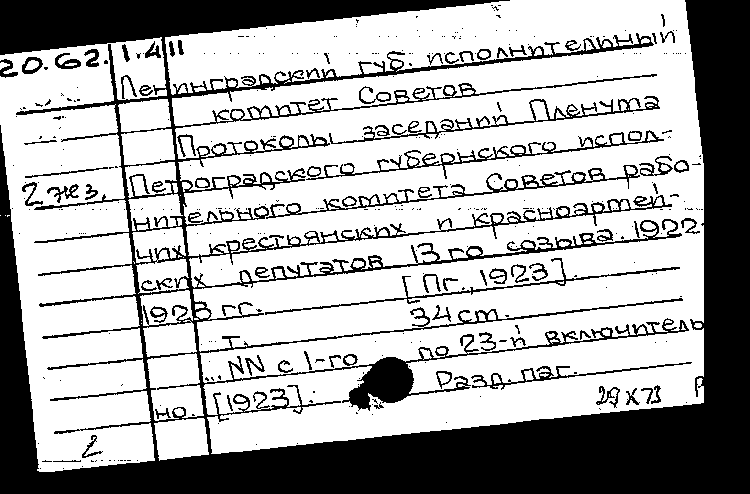 20.62. 1.4 11
Ленинградский губ. исполнительный
комитет Советов
Протоколы заседаний Пленума
2 экз. Петроградского губернского испол-
нительного комитета Советов рабо-
чих, крестьянских и красноармей-
ских депутатов 13го созыва. 1922-
1923 гг. [Пг., 1923].
т. 34 cm.
...NN с 1-го по 23-й включитель
но. [1923]. Разд. паг.
29 X 73 Р
2